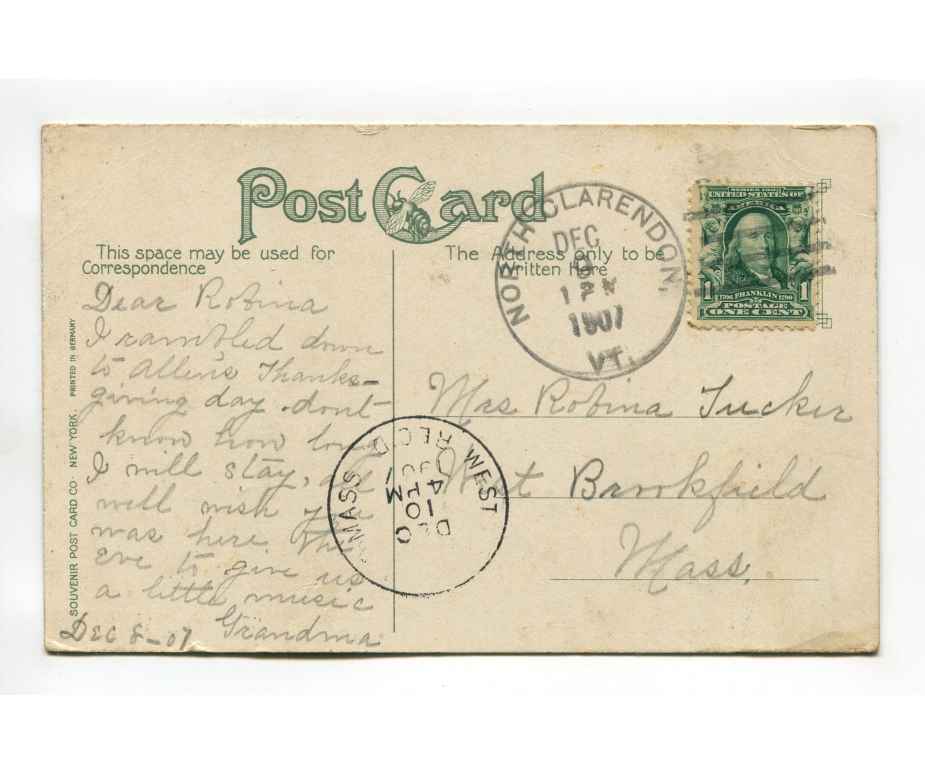 Post Card
This space may be used for
Correspondence
The Address only to be
Written Here
Dear Robina
I rambled down
to Allens Thanks-
giving day dont
know how long
I will stay, all
well wish you
was here this
Eve to give us
a little music
Grandma
Dec 8-07
SOUVENIR POST CARD CO. NEW YORK. PRINTED IN GERMANY
NORTH CLARENDON,
DEC
1907
VT.
SERIES 1902
UNITED STATES OF
AMERICA
1706 FRANKLIN 1790
1 1
POSTAGE
ONE CENT
Mrs Robina Tucker
West Brookfield
Mass.
WEST MASS
REC'D
4 PM
10
DEC